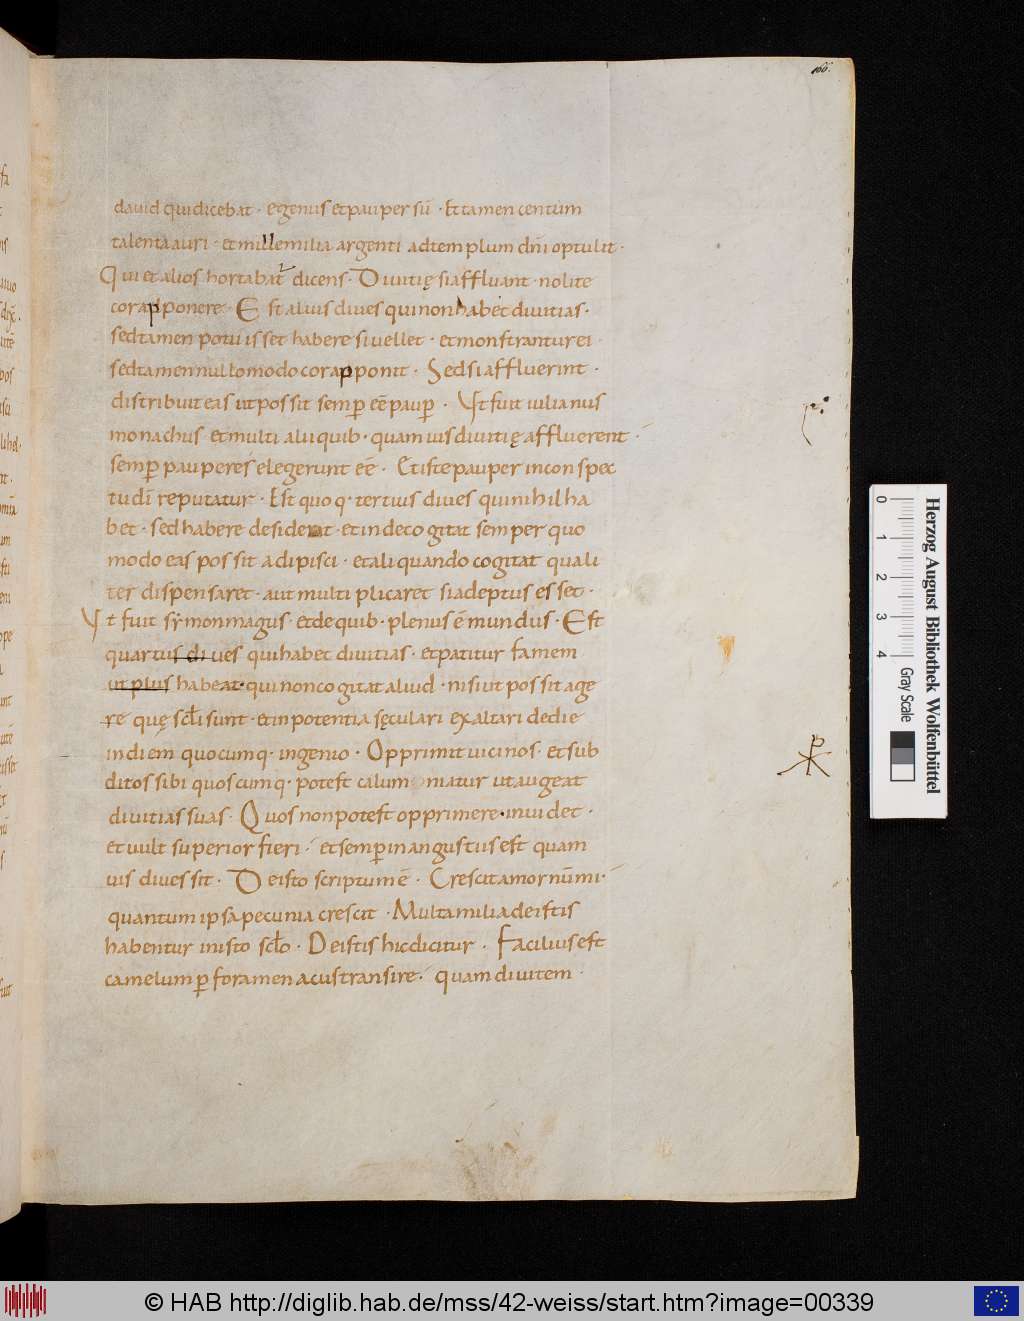 166.
dauid qui dicebat · egenus et pauper sū · Et tamen centum
talenta auri · et mille milia argenti ad templum dn̄i optulit ·
Qui et alios hortabat dicens · Diuitię si affluant · nolite
cor apponere · Est alius diues qui non habet diuitias ·
sed tamen potuisset habere si uellet · et monstrantur ei ·
sed tamen nullo modo cor apponit · Sed si affluerint ·
distribuit eas ut possit semꝑ eē pauꝑ · Ut fuit iulianus
monachus et multi alii quib · quamuis diuitię affluerent ·
semꝑ pauperes elegerunt eē · Et iste pauper in conspec
tu dī reputatur · Est quoq · tertius diues qui nihil ha
bet · sed habere desiderat · et inde cogitat semper quo
modo eas possit adipisci · et aliquando cogitat quali
ter dispensaret · aut multiplicaret si adeptus esset ·
Ut fuit symon magus · et de quib · plenus ē mundus · Est
quartus diues qui habet diuitias · et patitur famem
ut plus habeat · qui non cogitat aliud · nisi ut possit age
re quę scl̄i sunt · et in potentia sęculari exaltari de die
in diem quocumq · ingenio · Opprimit uicinos · et sub
ditos sibi quoscumq · potest calumniatur ut augeat
diuitias suas · Quos non potest opprimere · inuidet ·
et uult superior fieri · et semꝑ in angustiis est quam
uis diues sit · De isto scriptum ē · Crescit amor nūmi ·
quantum ipsa pecunia crescit · Multa milia de istis
habentur in isto scl̄o · De istis hic dicitur · Facilius est
camelum ꝑ foramen acus transire · quam diuitem ·
0 1 2 3 4
Herzog August Bibliothek Wolfenbüttel
Gray Scale
© HAB http://diglib.hab.de/mss/42-weiss/start.htm?image=00339